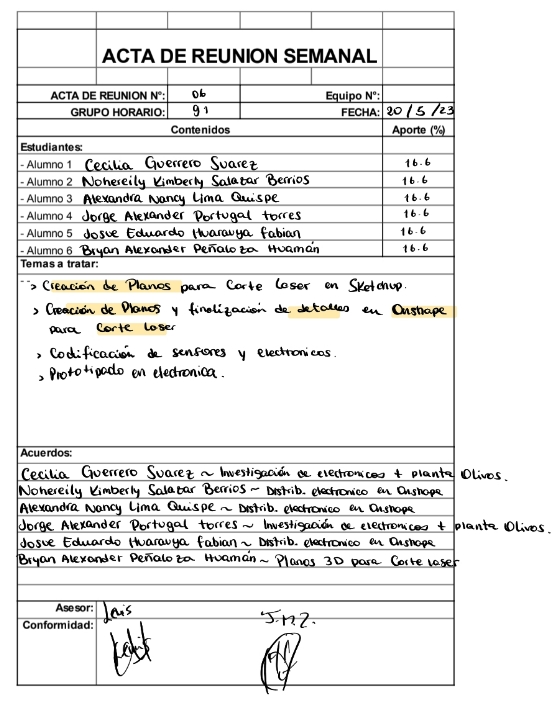 ACTA DE REUNION SEMANAL
ACTA DE REUNION Nº: 06 Equipo Nº:
GRUPO HORARIO: 91 FECHA: 20/5/23
Contenidos Aporte (%)
Estudiantes:
- Alumno 1 Cecilia Guerrero Suarez 16.6
- Alumno 2 Nohereily Kimberly Salazar Berrios 16.6
- Alumno 3 Alexandra Nancy Lima Quispe 16.6
- Alumno 4 Jorge Alexander Portugal torres 16.6
- Alumno 5 Josue Eduardo Huarauya fabian 16.6
- Alumno 6 Bryan Alexander Peñaloza Huamán 16.6
Temas a tratar:
-> Creación de Planos para Corte laser en Sketchup.
> Creación de Planos y finalización de detalles en Onshape
para Corte laser
> Codificación de sensores y electronicos.
> Prototipado en electronica.
Acuerdos:
Cecilia Guerrero Suarez ~ Investigación de electronicos + planta Olivos.
Nohereily Kimberly Salazar Berrios ~ Distrib. electronico en Onshape
Alexandra Nancy Lima Quispe ~ Distrib. electronico en Onshape
Jorge Alexander Portugal torres ~ Investigación de electronicos + planta Olivos.
Josue Eduardo Huarauya fabian ~ Distrib. electronico en Onshape
Bryan Alexander Peñaloza Huamán ~ Planos 3D para Corte laser
Asesor: Luis J.M.Z.
Conformidad: